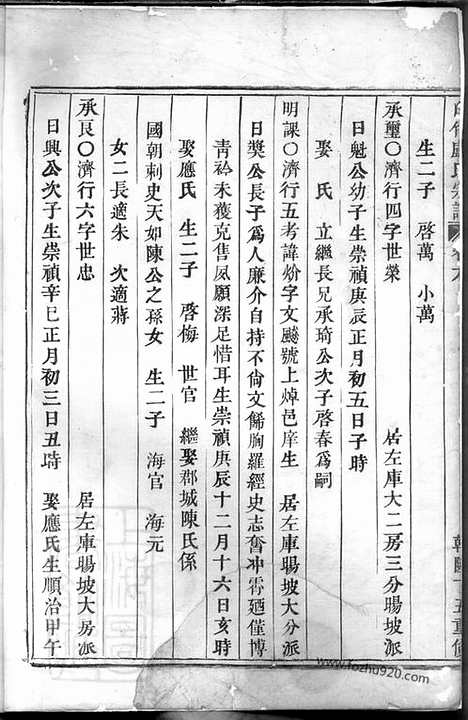 生二子 啓萬 小萬
承璽〇濟行四字世榮 居左庫大二房三分暘坡派
日魁公幼子生崇禎庚辰正月初五日子時
娶 氏 立繼長兄承琦公次子啓春爲嗣
明課〇濟行五考諱炌字文颷號上焯邑庠生 居左庫暘坡大分派
日奬公長子爲人廉介自持不尙文餙胸羅經史志奮冲霄廼僅博
青衿未獲克售夙願深足惜耳生崇禎庚辰十二月十六日亥時
娶應氏 生二子 啓梅 世官 繼娶郡城陳氏係
國朝刺史天如陳公之孫女 生二子 海官 海元
女二長適朱 次適蔣
承艮〇濟行六字世忠 居左庫暘坡大房派
日興公次子生崇禎辛巳正月初三日丑時 娶應氏生順治甲午
www.fozhu920.com